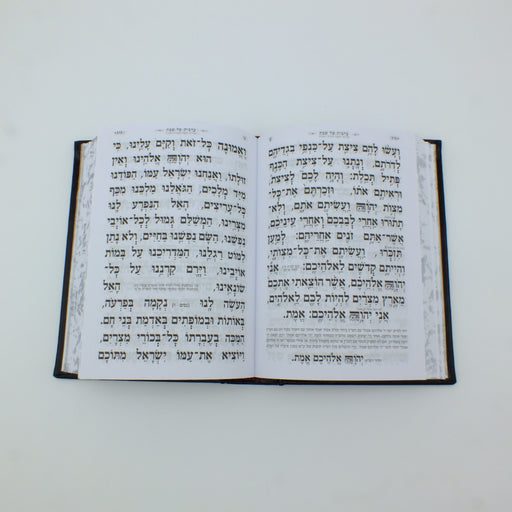 ערבית של שבת
וְעָשׂוּ לָהֶם צִיצִת עַל־כַּנְפֵי בִגְדֵיהֶם
לְדֹרֹתָם, וְנָתְנוּ עַל־צִיצִת הַכָּנָף
פְּתִיל תְּכֵלֶת: וְהָיָה לָכֶם לְצִיצִת,
וּרְאִיתֶם אֹתוֹ וּזְכַרְתֶּם אֶת־כָּל־
מִצְוֹת יְהוָה וַעֲשִׂיתֶם אֹתָם, וְלֹא־
תָתוּרוּ אַחֲרֵי לְבַבְכֶם וְאַחֲרֵי עֵינֵיכֶם,
אֲשֶׁר־אַתֶּם זֹנִים אַחֲרֵיהֶם: לְמַעַן
תִּזְכְּרוּ, וַעֲשִׂיתֶם אֶת־כָּל־מִצְוֹתָי,
וִהְיִיתֶם קְדֹשִׁים לֵאלֹהֵיכֶם: אֲנִי
יְהוָה אֱלֹהֵיכֶם, אֲשֶׁר הוֹצֵאתִי אֶתְכֶם
מֵאֶרֶץ מִצְרַיִם לִהְיוֹת לָכֶם לֵאלֹהִים,
אֲנִי יְהוָה אֱלֹהֵיכֶם: אֱמֶת.
יְהוָה אֱלֹהֵיכֶם אֱמֶת.
ערבית של שבת
וֶאֱמוּנָה כָּל־זֹאת וְקַיָּם עָלֵינוּ, כִּי
הוּא יְהוָה אֱלֹהֵינוּ וְאֵין
זוּלָתוֹ, וַאֲנַחְנוּ יִשְׂרָאֵל עַמּוֹ, הַפּוֹדֵנוּ
מִיַּד מְלָכִים, הַגֹּאֲלֵנוּ מַלְכֵּנוּ מִכַּף
כָּל־עָרִיצִים, הָאֵל הַנִּפְרָע לָנוּ
מִצָּרֵינוּ, הַמְשַׁלֵּם גְּמוּל לְכָל־אוֹיְבֵי
נַפְשֵׁנוּ, הַשָּׂם נַפְשֵׁנוּ בַּחַיִּים, וְלֹא נָתַן
לַמּוֹט רַגְלֵנוּ, הַמַּדְרִיכֵנוּ עַל בָּמוֹת
אוֹיְבֵינוּ, וַיָּרֶם קַרְנֵנוּ עַל כָּל־
שׂוֹנְאֵינוּ, הָאֵל
הָעֹשֶׂה לָנוּ נְקָמָה בְּפַרְעֹה,
בְּאוֹתוֹת וּבְמוֹפְתִים בְּאַדְמַת בְּנֵי חָם,
הַמַּכֶּה בְעֶבְרָתוֹ כָּל־בְּכוֹרֵי מִצְרָיִם,
וַיּוֹצִיא אֶת־עַמּוֹ יִשְׂרָאֵל מִתּוֹכָם